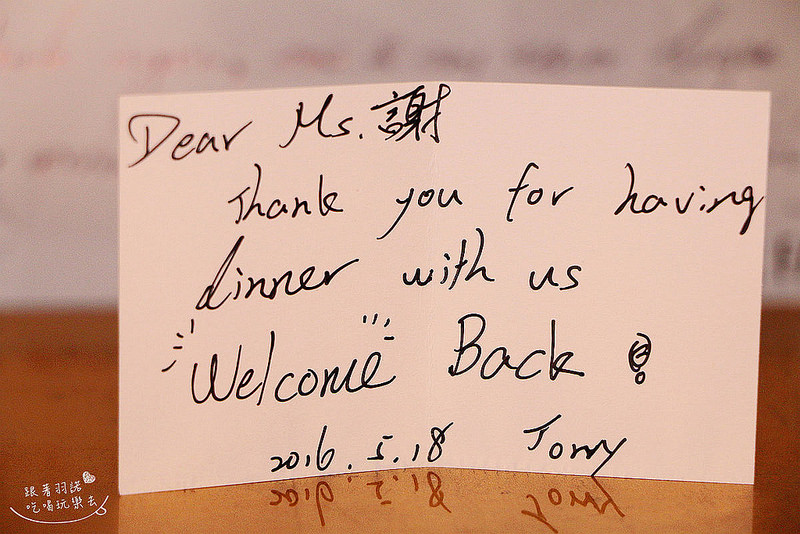 Dear Ms. 謝
Thank you for having
dinner with us
Welcome Back !
2016.5.18 Tony
跟著羽諾
吃喝玩樂去